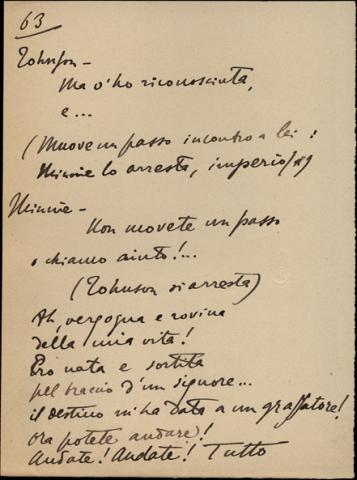 63
Johnson –
Ma v'ho riconosciuta,
e...
(Muove un passo incontro a lei:
Minnie lo arresta, imperiosa)
Minnie –
Non movete un passo
o chiamo aiuto!...
(Johnson si arresta)
Ah, vergogna e rovina
della mia vita!
Ero nata e sortita
pel braccio d'un signore...
il destino m'ha data a un grassatore!
Ora potete andare!
Andate! Andate! Tutto